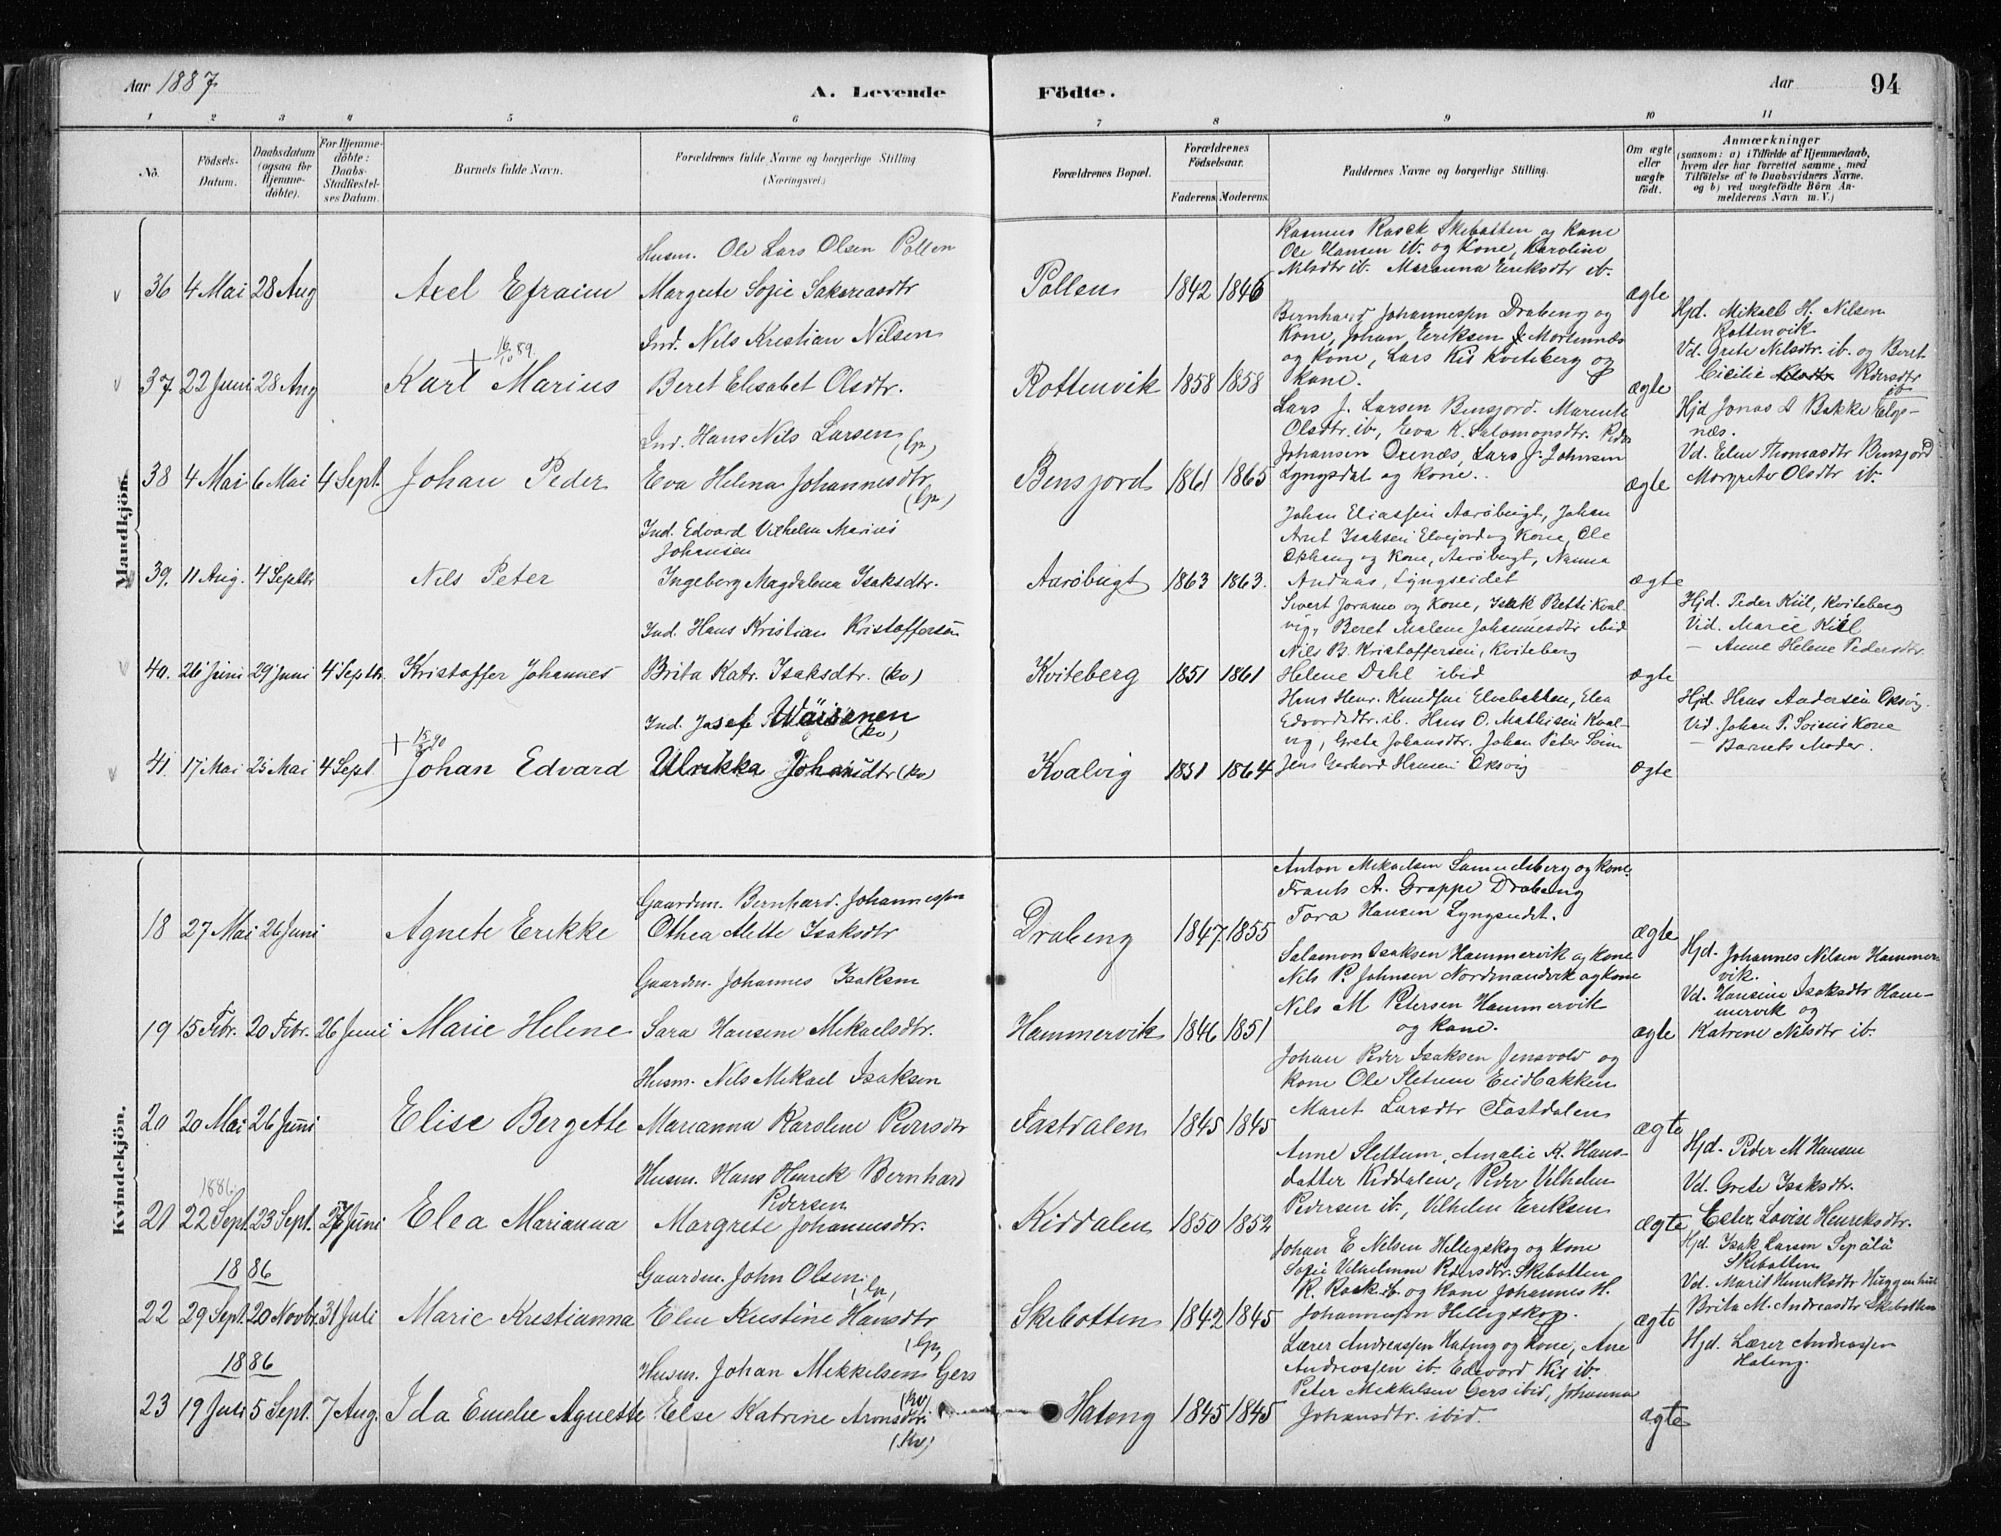 Aar 1887
A. Levende
Födte.
Aar
94
1 2 3 4 5 6 7 8 9 10 11
No.
Födsels-
Datum.
Daabsdatum
(ogsaa for
Hjemme-
döbte).
For Hjemme-
döbte:
Daabs-
Stadfæstel-
ses Datum.
Barnets fulde Navn.
Forældrenes fulde Navne og borgerlige Stilling
(Næringsvei.)
Forældrenes Bopæl.
Forældrenes
Födselsaar.
Faderens. Moderens.
Faddernes Navne og borgerlige Stilling.
Om ægte
eller
uægte
födt.
Anmærkninger
(saasom: a) i Tilfælde af Hjemmedaab,
hvem der har forrettet samme, med
Tilföielse af to Daabsvidners Navne.
og b) ved uægtefödte Börn An-
melderens Navn m. V.)
Mandkjön.
36 4 Mai 28 Aug
Axel Efraim
Husm. Ole Lars Olsen Pollen
Margrete Sofie Sakariasdtr
Pollen
1842 1846
Rasmus Rasck Skibotten og kone
Ole Hansen ib. og Kone, Karoline
Nilsdtr ib. Marianna Eriksdtr ib.
ægte
37 22 Juni 28 Aug
16/10 89
Karl Marius
Ind. Nils Kristian Nilsen
Beret Elisabet Olsdtr.
Rottenvik
1858 1858
Bernhard Johannessen Drabeng og
Kone, Johan Eriksen Mortennæs
og Kone, Lars Kiil Kviteberg og
Kone.
ægte
Hjd. Mikael H. Nilsen
Rottenvik
Vd. Grete Nilsdtr. ib. og Beret
Cicilie Pedersdtr
ib
38 4 Mai 6 Mai 4 Sept
Johan Peder
Ind. Hans Nils Larsen (lp)
Eva Helena Johannesdtr
(lp)
Bensjord
1861 1865
Lars J. Larsen Bensjord. Marente
Olsdtr. ib, Eva K. Salomonsdtr. Peder
Johansen Oxenæs, Lars J. Johnsen
Lyngsdal og Kone.
ægte
Hjd Jonas A Bakke Elge-
næs.
Vd. Elen Thomasdtr Bensjord
Margrete Olsdtr ib.
39. 11 Aug. 4 Septbr
Nils Peter
Ind. Edvard Vilhelm Marius
Johansen
Ingeborg Magdalena Isaksdtr.
Aaröbugt
1863 1863.
Johan Eliassen Aaröbugt, Johan
Arnt Isaksen Elvejord og Kone, Ole
Ophaug og Kone, Aaröbugt, Nanna
Andaas, Lyngseidet
ægte
40. 26 Juni 29 Juni 4 Septbr.
Kristoffer Johannes
Ind. Hans Kristian Kristoffersen
Brita Katr. Isaksdtr. (kv)
Kviteberg
1851 1861
Sivert Joramo og Kone, Isak Betti Kval-
vig, Beret Malene Johannesdtr ibid
Nils B. Kristoffersen, Kviteberg
Helene Dahl ibid
ægte
Hjd. Peder Kiil, Kviteberg
Vid. Marie Kiil
— Anne Helene Pedersdtr.
41. 17 Mai 25 Mai 4 Sept
15/ 90
Johan Edvard
Ind. Josef Wäisänen
(kv)
Ulrikka Johansdtr (kv)
Kvalvig
1851 1864
Hans Henr. Knudsen Elvebakken, Elea
Edvardsdtr. ib. Hans O. Mathisen Kval-
vig, Greta Johansdtr. Johan Peter Soini
Jens Gerhard Hansen Oksvig
ægte
Hjd. Hans Andersen Oksvig.
Vid. Johan P. Soinis Kone
— Barnets Moder.
Kvindekjön.
18 27 Mai 26 Juni
Agnete Erikke
Gaardm. Bernhard Johannessen
Othea Mette Isaksdtr
Drabeng
1847 1855
Anton Mikaelsen Samuelsberg og kone.
Frants A. Grappe Drabeng
Tora Hansen Lyngseidet.
ægte
19 15 Febr. 20 Febr. 26 Juni
Marie Helene
Gaardm. Johannes Isaksen
Sara Hansine Mikaelsdtr.
Hammervik
1846 1851
Salamon Isaksen Hammervik og kone
Nils P. Johnsen Nordmandvik og kone
Nils M Petersen Hammervik
og Kone.
ægte
Hjd. Johannes Nilsen Hammer-
vik.
Vd. Hansine Isaksdtr Ham-
mervik og
Katrine Nilsdtr ib.
20 20 Mai 26 Juni
Elise Bergette
Husm. Nils Mikael Isaksen
Marianna Karoline Pedersdtr
Fastdalen
1845 1845
Johan Peder Isaksen Jensvold og
Kone Ole Sletum Eidbakken
Maret Larsdtr Fastdalen
ægte
1886.
21 22 Sept. 23 Sept. 27 Juni
Elea Marianna
Husm. Hans Henrik Bernhard
Pedersen
Margrete Johannesdtr.
Kiddalen
1850 1852
Anne Slettum, Amalie K. Hans-
datter Kiddalen, Peder Vilhelm
Pedersen ib., Vilhelm Eriksen
ægte
Hjd. Peder M Hansen
Vd. Grete Isaksdtr.
Ester Lovise Henriksdtr.
1886
22 29 Sept. 20 Novbr. 31 Juli
Marie Kristianna
Gaardm. John Olsen (lp)
Elen Kirstine Hansdtr
(lp)
Skibotten
1842 1845
Johan E Nilsen Helligskog og Kone
Sofie Vilhelmine Pedersdtr. Skibotten
R. Rask ib. og kone Johannes H.
Johannessen Helligskog.
ægte
Hjd. Isak Larsen Sepälä
Skibotten
Vd. Marit Henriksdtr Huggenhul
Brita M. Andreasdtr Skibotten
1886
23 19 Juli 5 Sept. 7 Aug.
Ida Emelie Agnette
Husm. Johan Mikkelsen Gers
(kv)
Else Katrine Aronsdtr
(kv)
Hateng
1845 1845
Lærer Andreassen Hateng og Kone, Ane
Andreassen ib. Edevard Kiil ib.
Peter Mikkelsen Gers ibid, Johanna
Johansdtr. ibid.
ægte
Hjd. Lærer Andreassen
Hateng.